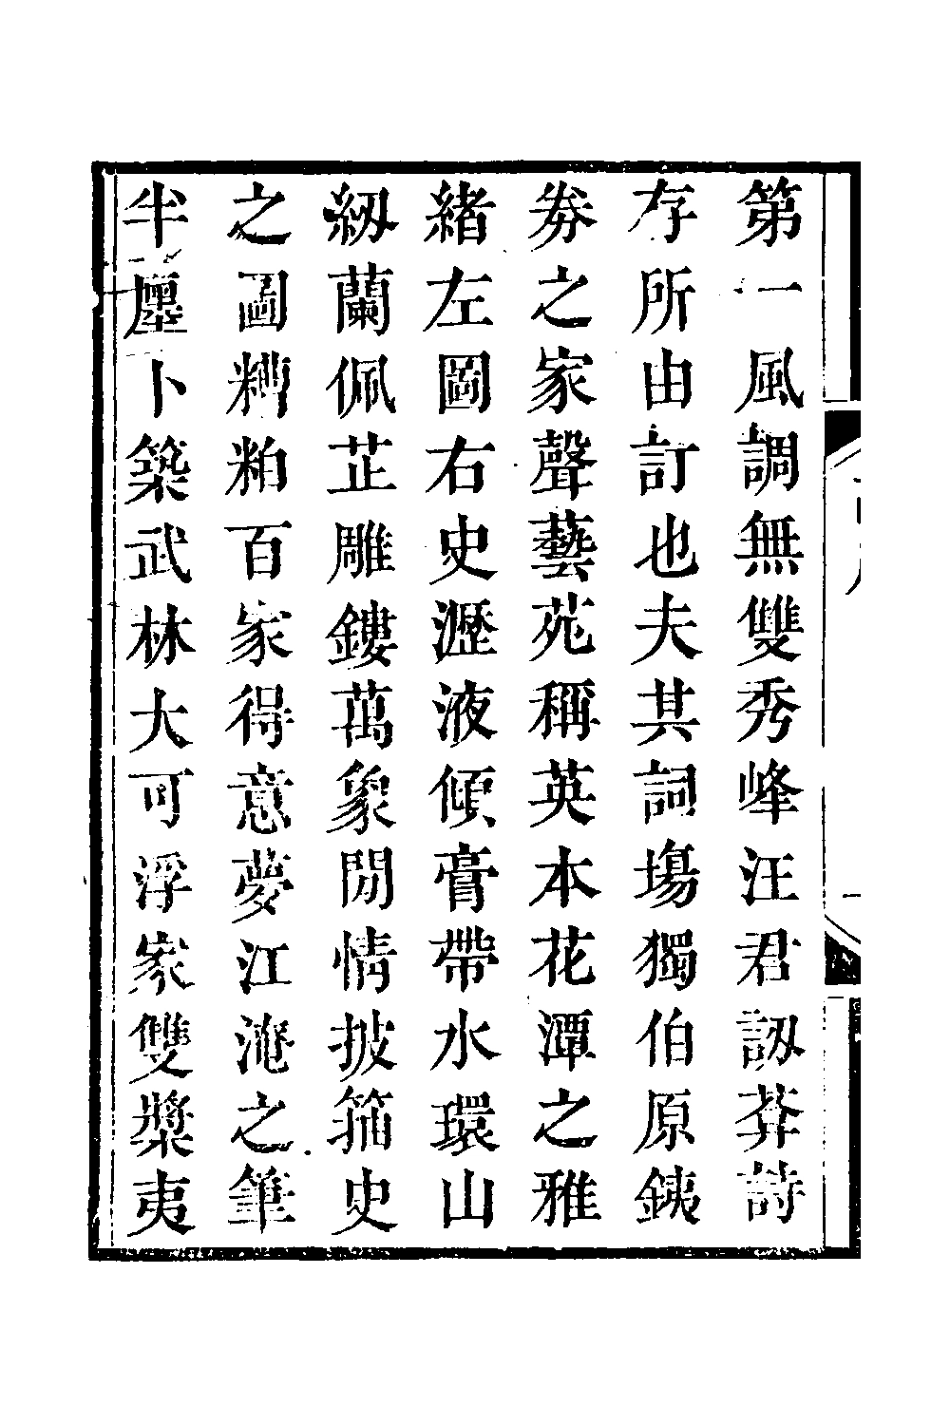 第一風調無雙秀峰汪君訒葊詩
存所由訂也夫其詞塲獨伯原錢
券之家聲藝苑稱英本花潭之雅
緒左圖右史瀝液傾膏帶水環山
紉蘭佩芷雕鏤萬象閒情披笛史
之圖糟粕百家得意夢江淹之筆
半廛卜築武林大可浮家雙槳夷